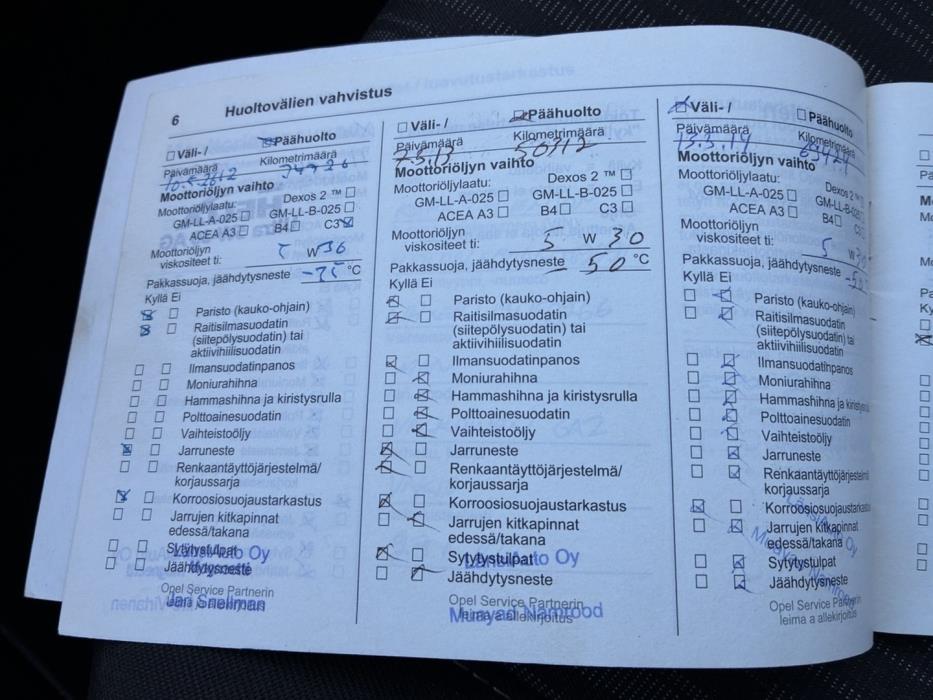 6 Huoltovälien vahvistus
Väli- / Päähuolto
Päivämäärä Kilometrimäärä
Moottoriöljyn vaihto
Moottoriöljylaatu: Dexos 2 ™
GM-LL-A-025 GM-LL-B-025
ACEA A3 B4 C3
Moottoriöljyn
viskositeet ti: W
Pakkassuoja, jäähdytysneste °C
Kyllä Ei
Paristo (kauko-ohjain)
Raitisilmasuodatin
(siitepölysuodatin) tai
aktiivihiilisuodatin
Ilmansuodatinpanos
Moniurahihna
Hammashihna ja kiristysrulla
Polttoainesuodatin
Vaihteistoöljy
Jarruneste
Renkaantäyttöjärjestelmä/
korjaussarja
Korroosiosuojaustarkastus
Jarrujen kitkapinnat
edessä/takana
Sytytystulpat
Jäähdytysneste
Opel Service Partnerin
Jari Snellman
Väli- / Päähuolto
Päivämäärä Kilometrimäärä
50912
Moottoriöljyn vaihto
Moottoriöljylaatu: Dexos 2 ™
GM-LL-A-025 GM-LL-B-025
ACEA A3 B4 C3
Moottoriöljyn
viskositeet ti: 5 W 30
Pakkassuoja, jäähdytysneste – 50 °C
Kyllä Ei
Paristo (kauko-ohjain)
Raitisilmasuodatin
(siitepölysuodatin) tai
aktiivihiilisuodatin
Ilmansuodatinpanos
Moniurahihna
Hammashihna ja kiristysrulla
Polttoainesuodatin
Vaihteistoöljy
Jarruneste
Renkaantäyttöjärjestelmä/
korjaussarja
Korroosiosuojaustarkastus
Jarrujen kitkapinnat
edessä/takana
Sytytystulpat
Jäähdytysneste
Opel Service Partnerin
leima a allekirjoitus
Muayad Namrood
Väli- / Päähuolto
Päivämäärä Kilometrimäärä
13.3.14
Moottoriöljyn vaihto
Moottoriöljylaatu: Dexos 2
GM-LL-A-025
ACEA A3 B4
Moottoriöljyn
viskositeet ti: 5 W
Pakkassuoja, jäähdytysneste
Kyllä Ei
Paristo (kauko-ohjain)
Raitisilmasuodatin
(siitepölysuodatin) tai
aktiivihiilisuodatin
Ilmansuodatinpanos
Moniurahihna
Hammashihna ja
Polttoainesuodatin
Vaihteistoöljy
Jarruneste
Renkaantäyttöjärjestelmä
korjaussarja
Jarrujen kitkapinnat
edessä/takana
Sytytystulpat
Jäähdytysneste
Opel Service Partnerin
leima a allekirjoitus